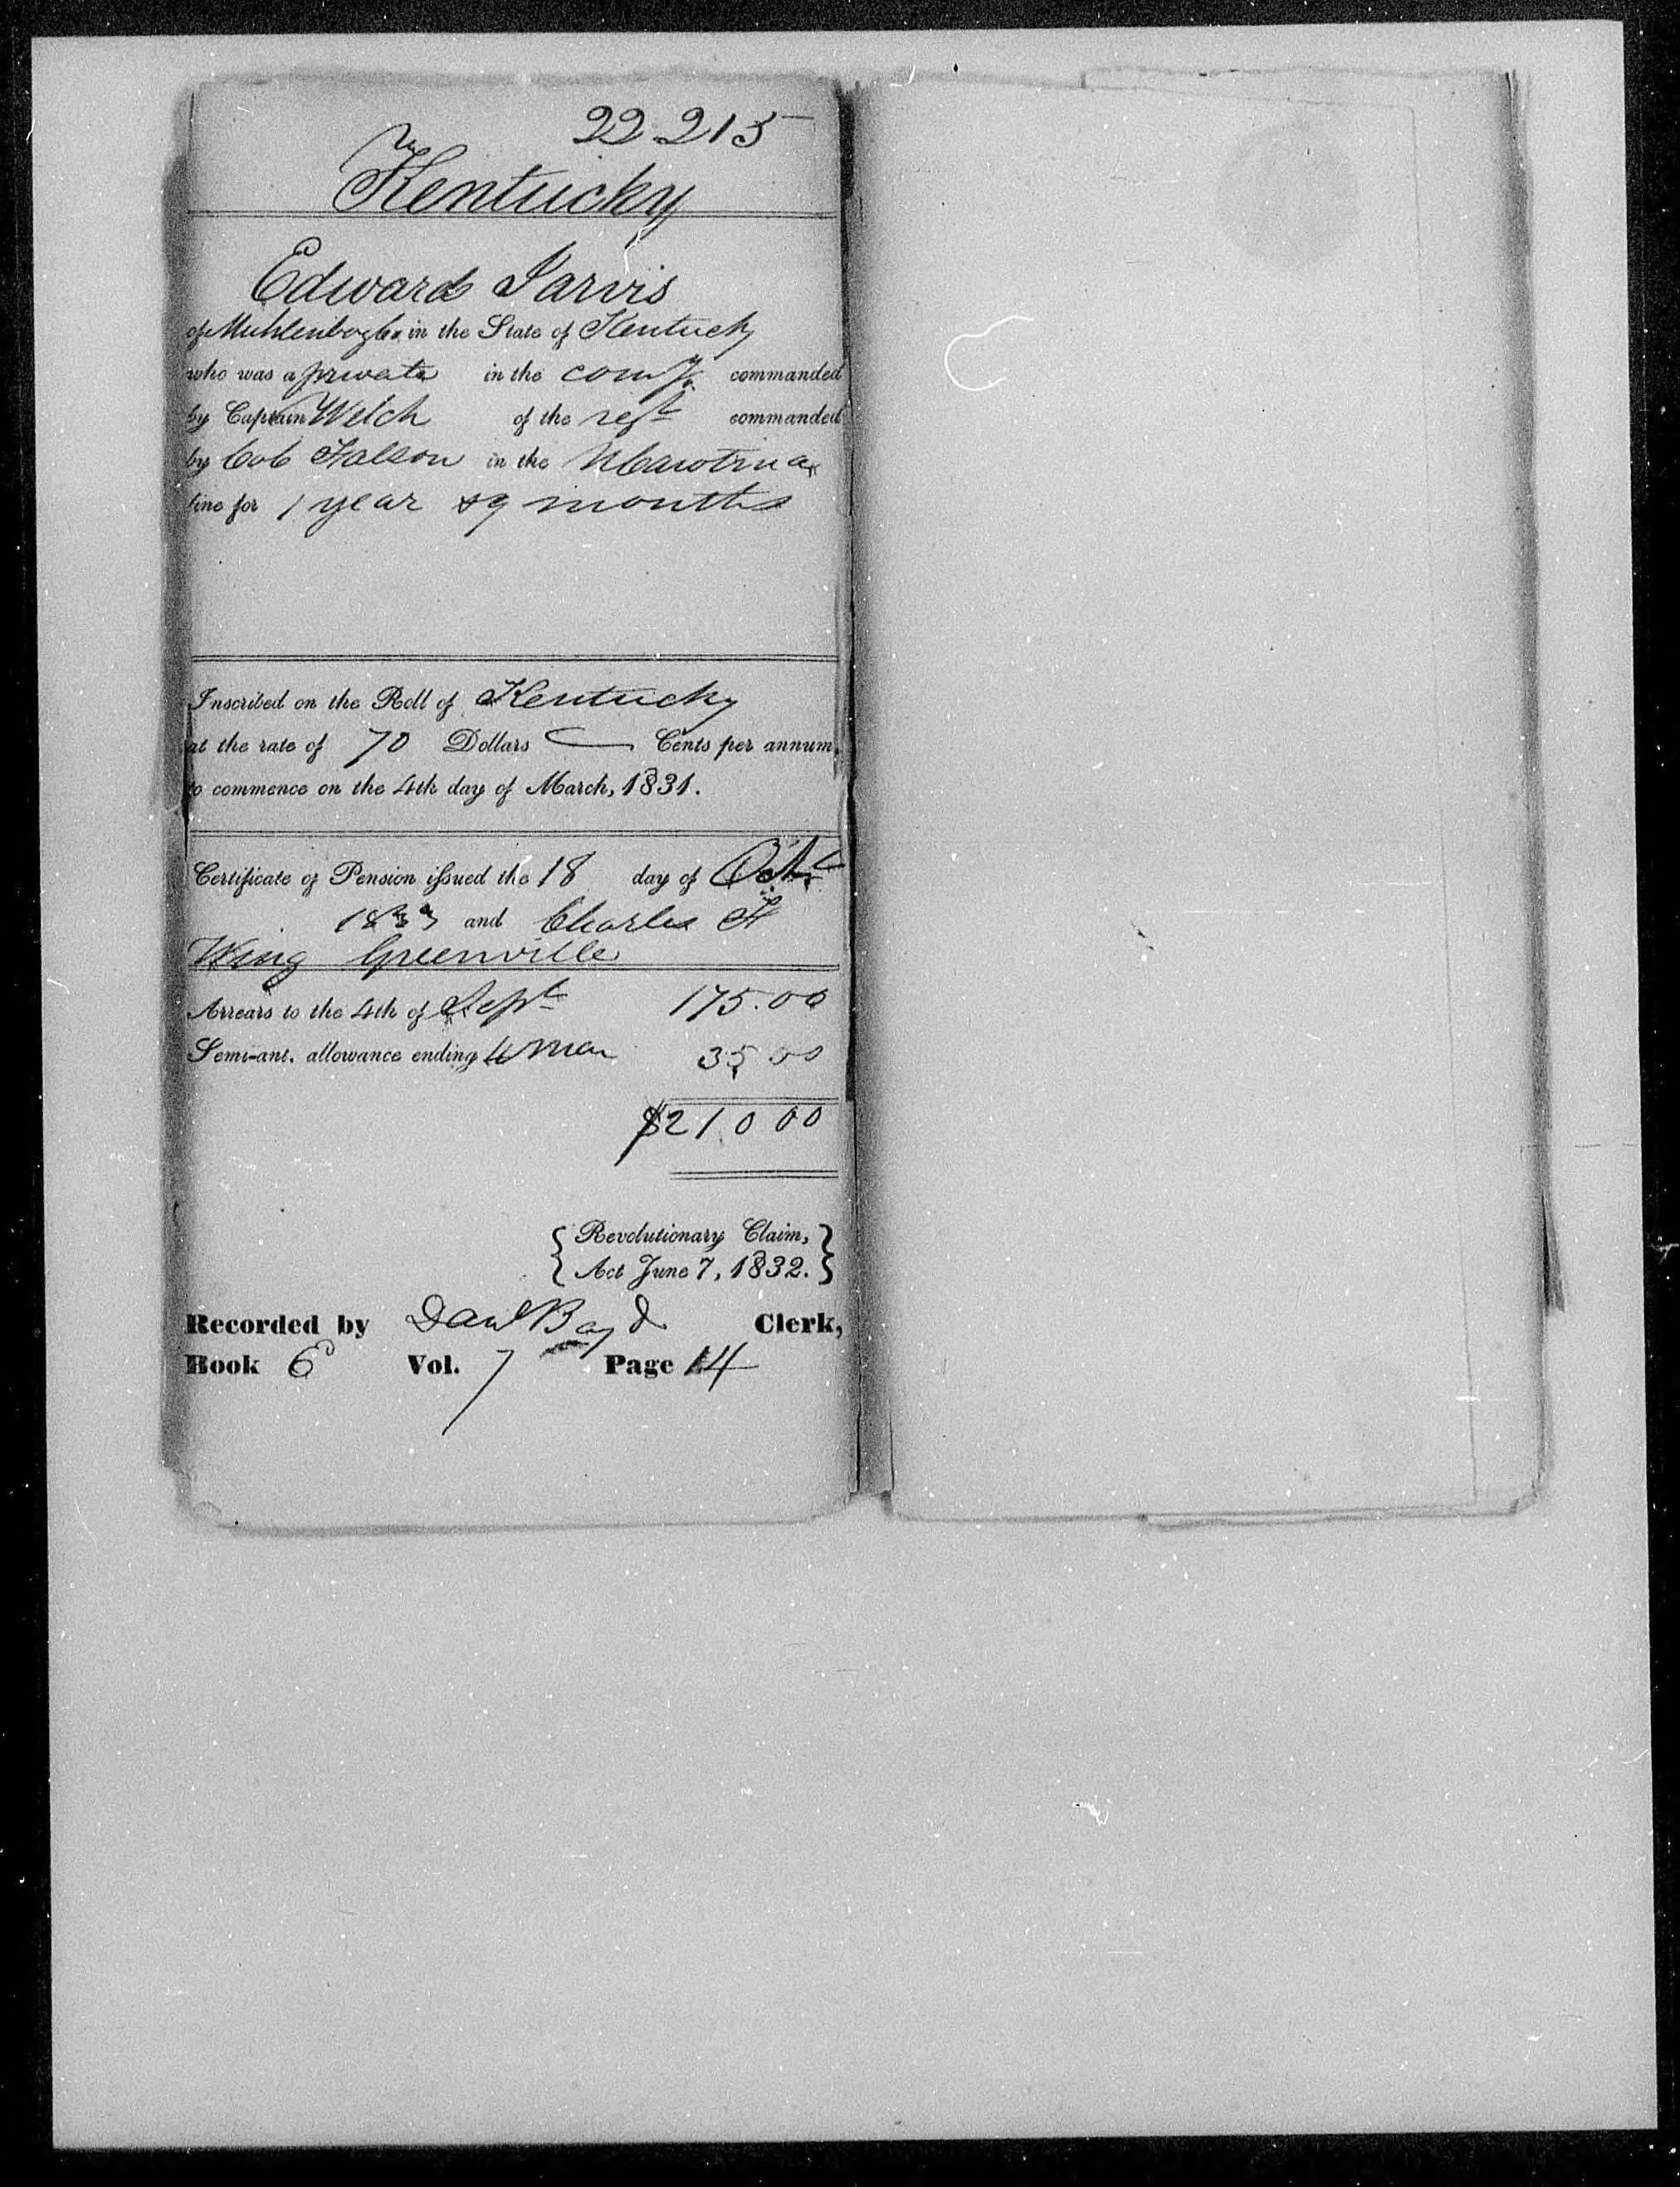 22.215
Kentucky
Edward Jarvis
of Muhlenbog Co. in the State of Kentucky
who was a private in the compy. commanded
by Captain Welch of the regt commanded
by Col in the N Carolina
line for 1 year & 9 months
Inscribed on the Roll of Kentucky
at the rate of 70 Dollars — Cents per annum,
to commence on the 4th day of March, 1831.
Certificate of Pension issued the 18 day of Octr
1833 and Charles F
Wing Greenville
Arrears to the 4th of Sept 175.00
Semi-anl. allowance ending 4 Mar 35 00
$210 00
{ Revolutionary Claim, }
{ Act June 7, 1832. }
Recorded by Danl Boyd Clerk,
Book E Vol. 7 Page 14